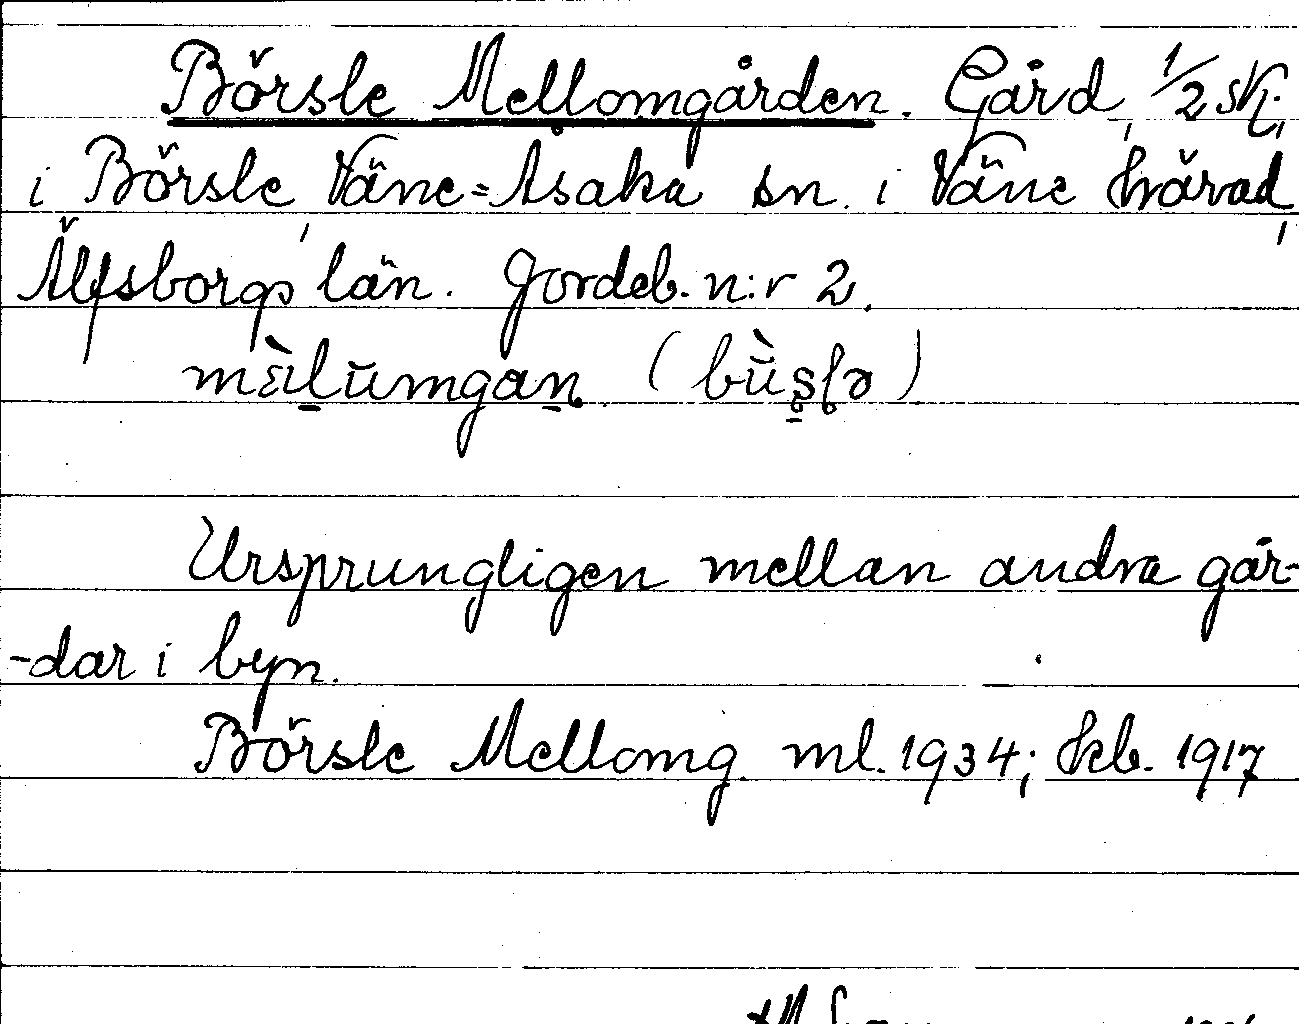 Börsle Mellomgården. Gård, 1/2 sk.,
i Börsle, Väne-Åsaka sn. i Väne härad,
Älfsborgs län. Jordeb. n:r 2.
Ursprungligen mellan andra går-
-dar i byn.
Börsle Mellomg. ml. 1934; Jeb. 1917